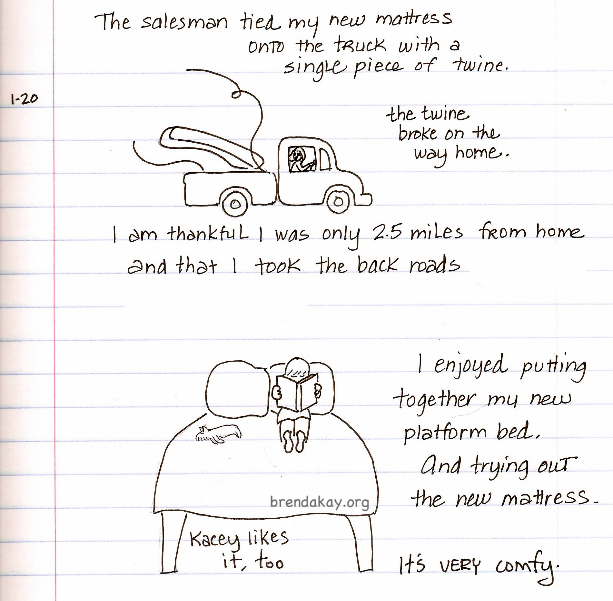 The salesman tied my new mattress
onto the truck with a
single piece of twine.
1-20
the twine
broke on the
way home.
I am thankful I was only 2.5 miles from home
and that I took the back roads
I enjoyed putting
together my new
platform bed.
And trying out
the new mattress.
brendakay.org
Kacey likes
it, too
It's VERY comfy.